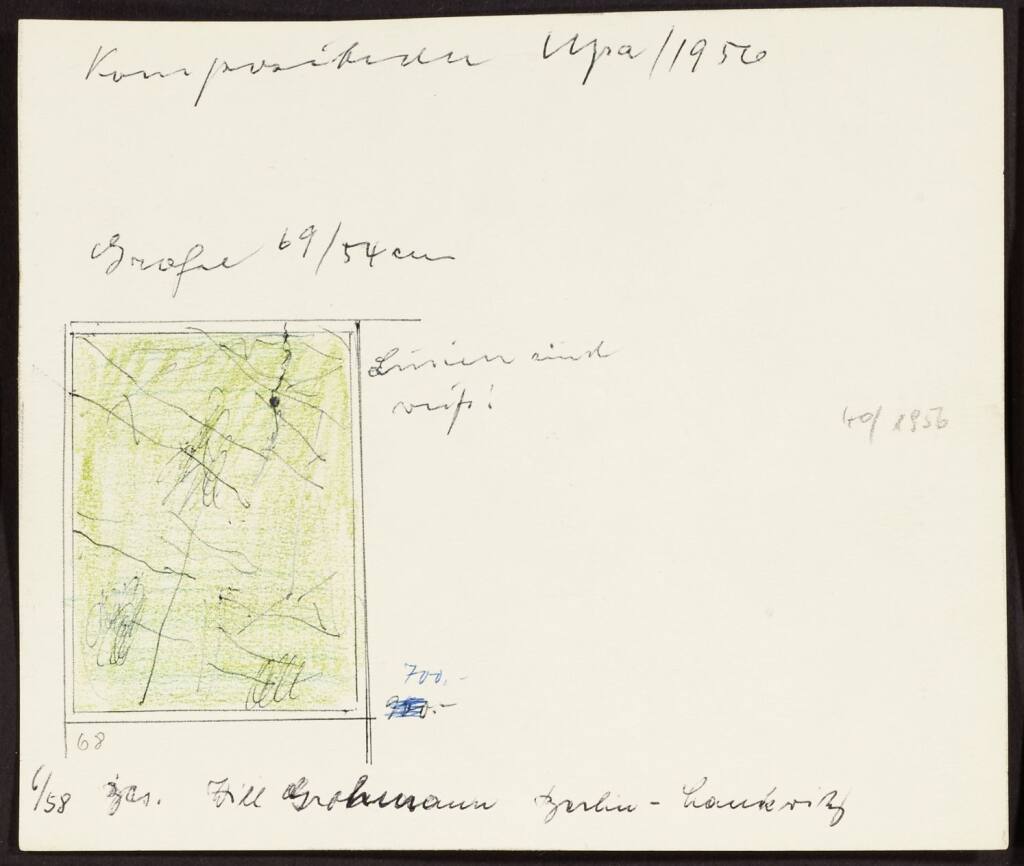 Komposition Upa/1956
Größe 69/54 cm
Linien sind
weiß!
40/1956
700.-
68
6/58 Bes. Will Grohmann Berlin-Lankwitz